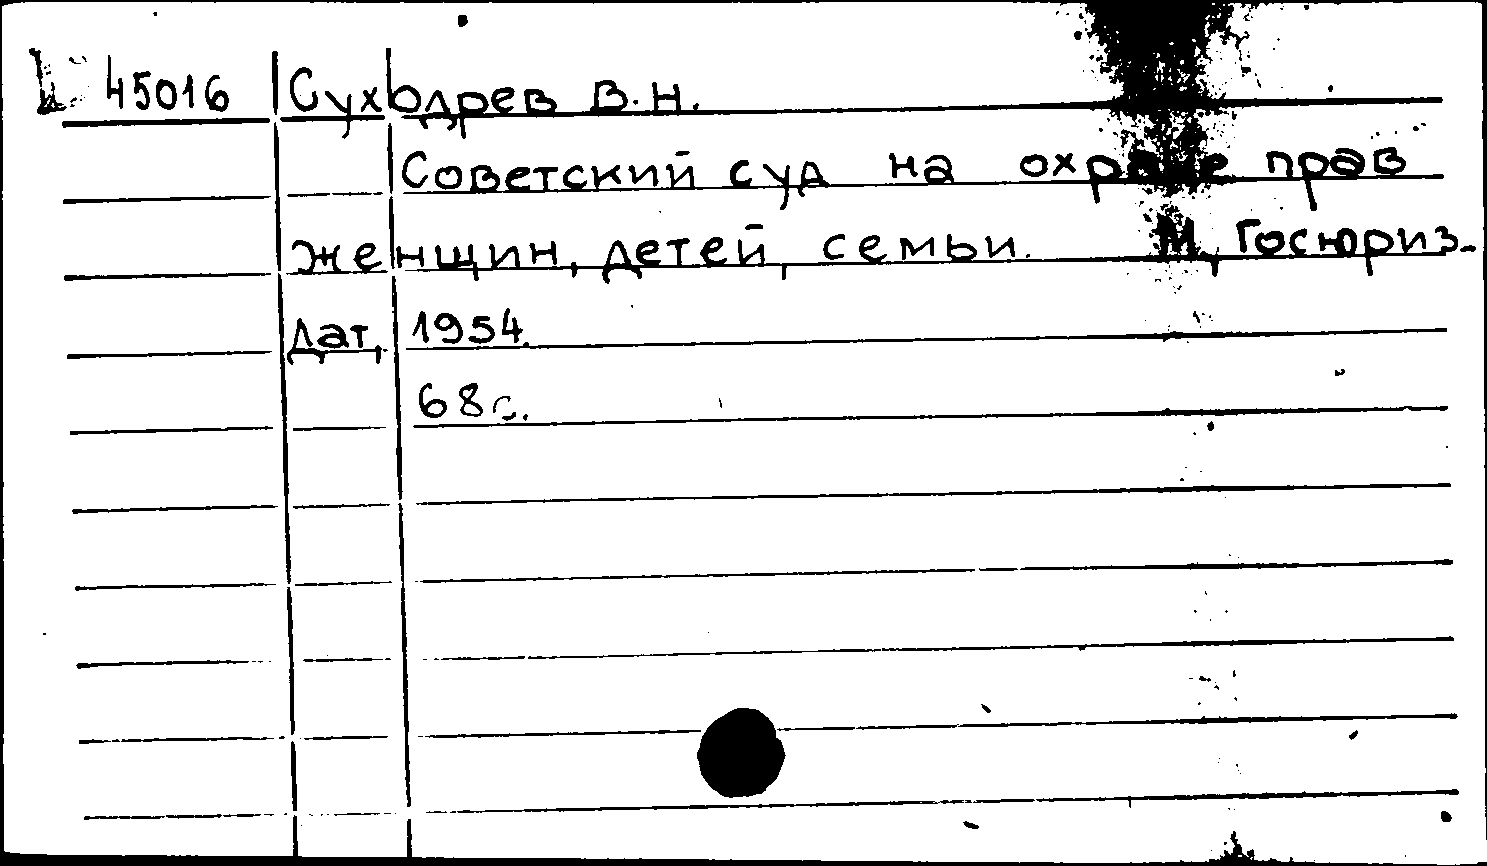 45016 Суходрев В.Н.
Советский суд на охране прав
женщин, детей, семьи. М., Госюриз-
дат, 1954.
68с.